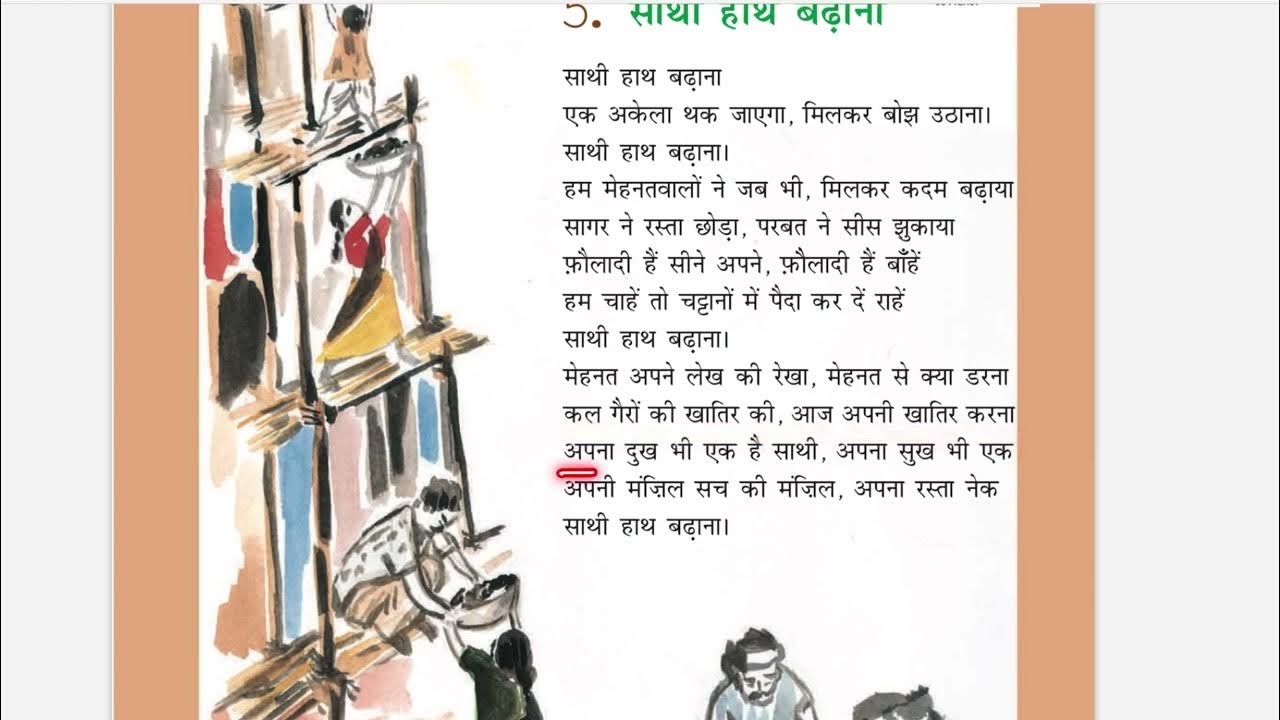 5. साथी हाथ बढ़ाना
साथी हाथ बढ़ाना
एक अकेला थक जाएगा, मिलकर बोझ उठाना।
साथी हाथ बढ़ाना।
हम मेहनतवालों ने जब भी, मिलकर कदम बढ़ाया
सागर ने रस्ता छोड़ा, परबत ने सीस झुकाया
फ़ौलादी हैं सीने अपने, फ़ौलादी हैं बाँहें
हम चाहें तो चट्टानों में पैदा कर दें राहें
साथी हाथ बढ़ाना।
मेहनत अपने लेख की रेखा, मेहनत से क्या डरना
कल गैरों की खातिर की, आज अपनी खातिर करना
अपना दुख भी एक है साथी, अपना सुख भी एक
अपनी मंज़िल सच की मंज़िल, अपना रस्ता नेक
साथी हाथ बढ़ाना।